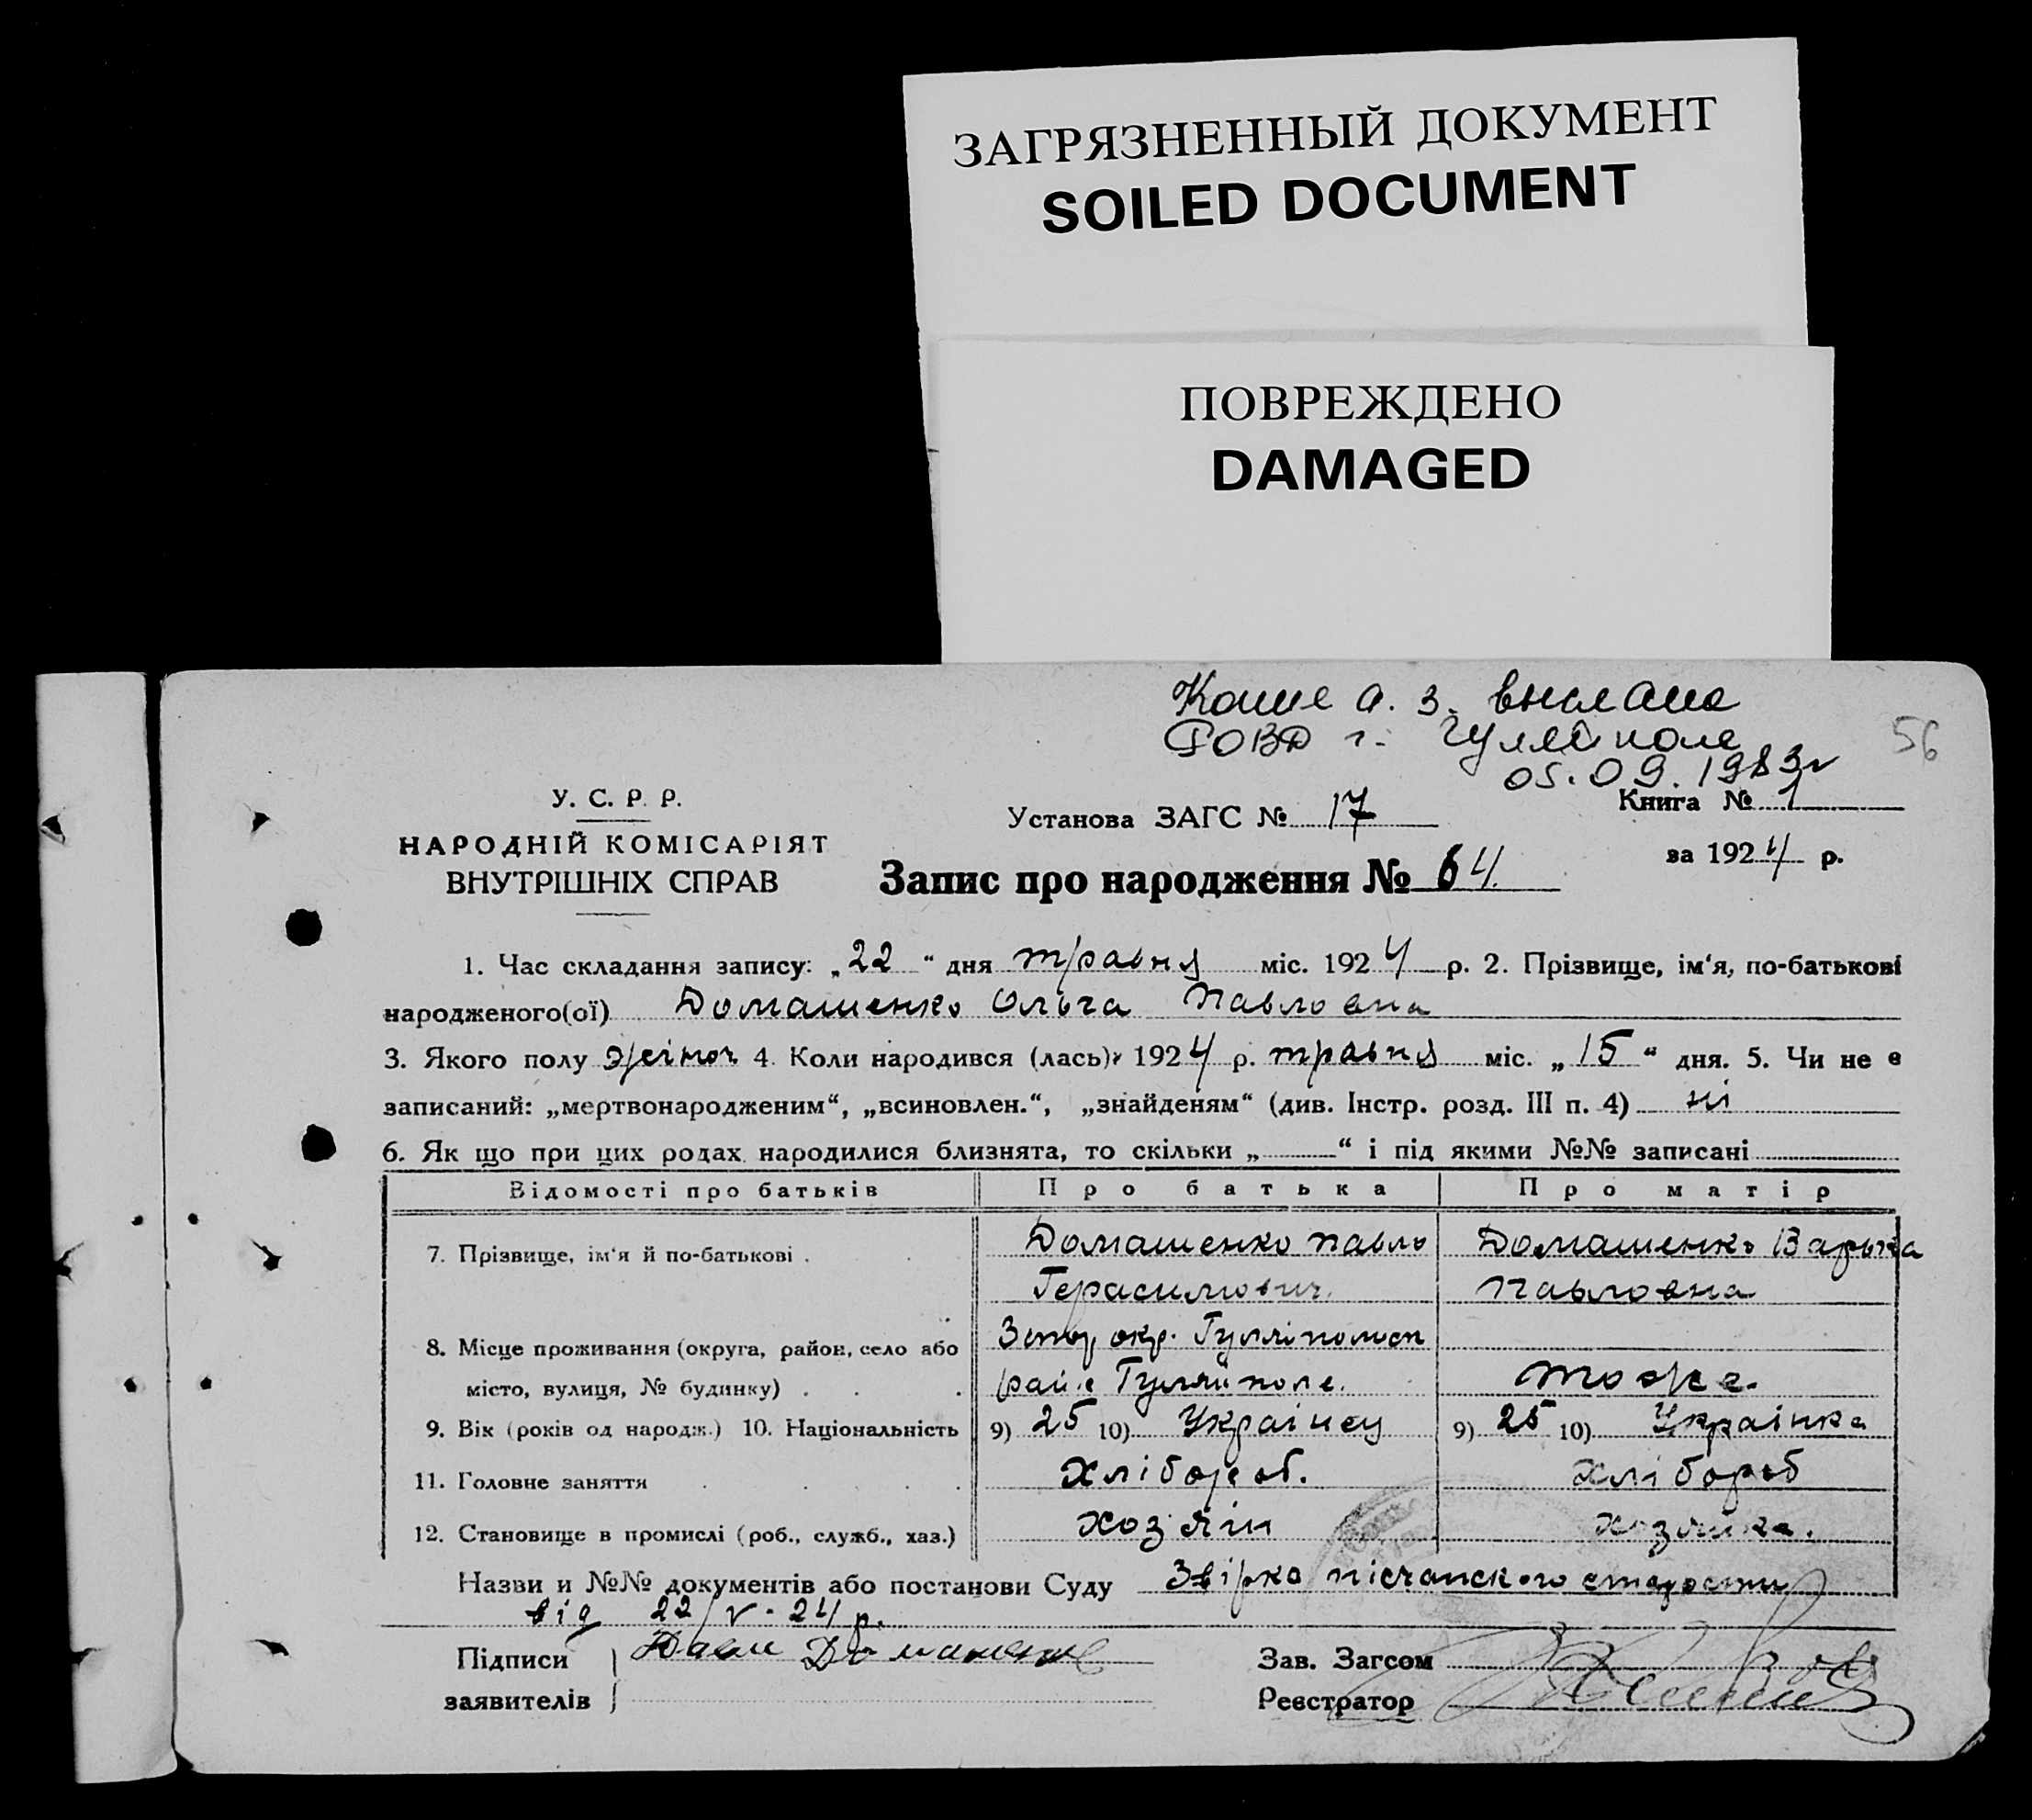 ЗАГРЯЗНЕННЫЙ ДОКУМЕНТ
SOILED DOCUMENT
ПОВРЕЖДЕНО
DAMAGED
а. з. выслана
РОВД г. Гуляйполе
05.09.1983г
56
У. С. Р. Р.
НАРОДНІЙ КОМІСАРІЯТ
ВНУТРІШНІХ СПРАВ
Установа ЗАГС № 17
Книга № 1
за 1924 р.
Запис про народження № 64.
1. Час складання запису: „22“ дня травня міс. 1924 р. 2. Прізвище, ім‘я, по-батькові
народженого(ої) Домашенко Ольга Павловна
3. Якого полу жіноч 4. Коли народився (лась) 1924 р. травня міс. „15“ дня. 5. Чи не є
записаний: „мертвонародженим“, „всиновлен.“, „знайденям“ (див. Інстр. розд. III п. 4) ні
6. Як що при цих родах народилися близнята, то скільки „ “ і під якими №№ записані
Відомості про батьків Про батька Про матір
7. Прізвище, ім‘я й по-батькові . Домашенко Павло Домашенко Варька
Герасимович. Павловна
8. Місце проживання (округа, район, село або окр. Гуляіпольск
місто, вулиця, № будинку) . . . Гуляйполе. тоже.
9. Вік (років од народж.) 10. Національність 9) 25 10) Украінец 9) 25 10) Украінка
11. Головне заняття Хлібороб. Хлібороб
12. Становище в промислі (роб., служб., хаз.) хозяін хозяйка.
Назви и №№ документів або постанови Суду Звірка пісчанского старости
від 22/V-24 р.
Підписи Домашенко
заявителів
Зав. Загсом
Реєстратор